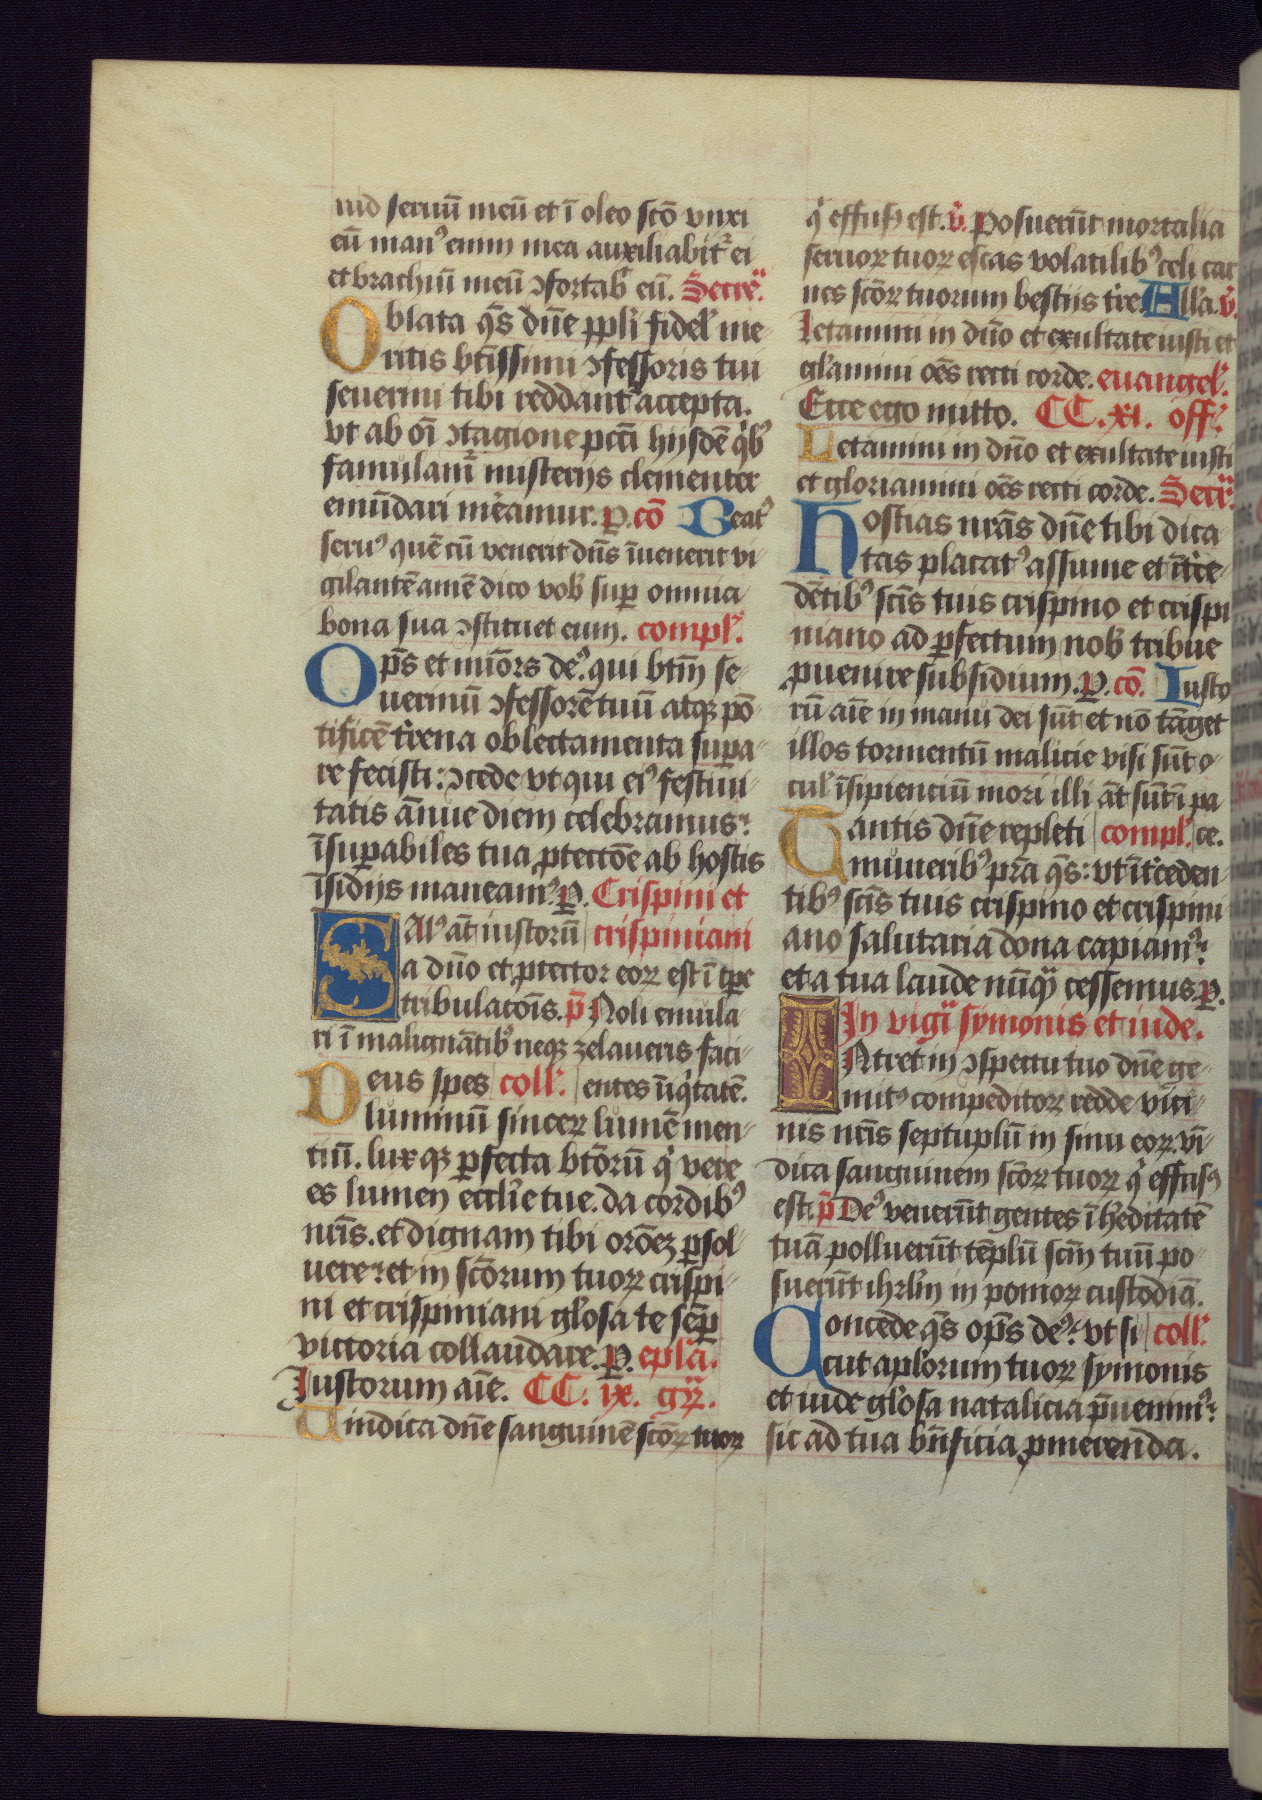 uid seruū meū et ī oleo scō vnxi
eū manꝰ enim mea auxiliabit᷑ ei
et brachiū meū ↄfortab᷑ eū. Secre᷑.
Oblata q̄s dn̄e ppl᷑i fidel᷑ me-
ritis bt̄issimi ↄfessoris tui
seuerini tibi reddant᷑ accepta.
vt ab oī ↄtagione pctī hijsdē qͥbꝰ
famulam᷑ misterijs clementer
emūdari mereamur. P. cō Beatꝰ
seruꝰ quē cū venerit dn̄s īuenerit vi-
gilantē amē dico vob᷑ sup̱ omnia
bona sua ↄstituet eum. compl᷑.
Op̄s et mīorꝭ deꝰ. qui btm̄ se-
uerinū ↄfessorē tuū atqꝫ pō-
tificē t᷑rena oblectamenta sup̱a-
re fecisti: ↄcede vt qui eiꝰ festiui-
tatis ānue diem celebramus:
īsup̱abiles tua ꝓtectōe ab hostis
īsidijs maneamꝰ. P. Crispini et
Salꝰ āt iustorū crispiniani
a dn̄o et ꝓtector eoꝝ est ī tp̱e
tribulacōis. p̄ Noli emula
ri ī malignātibꝰ neqꝫ zelaueris faci-
Deus spes coll᷑. entes īiqͥtatē.
luminū sinceꝝ lumē men-
tiū. lux qꝫ ꝑfecta btōrū qͥ vere
es lumen eccl᷑ie tue. da cordibꝰ
nr̄is. et dignam tibi orōeꝫ ꝑsol-
uere: et in scōrum tuoꝝ crispi-
ni et crispiniani gl᷑osa te sēp̱
victoria collaudare. P. epl᷑a.
Iustorum aīe. CC. ix. gr᷑.
Uindica dn̄e sanguinē scōꝝ tuoꝝ
qͥ effusꝰ est. v᷑. Posuerūt mortalia
seruoꝝ tuoꝝ escas volatilibꝰ celi car
nes scōꝝ tuorum bestijs t᷑re. All᷑a. v᷑.
Letamini in dn̄o et exultate iusti et
gl᷑amini oēs recti corde. euangel᷑.
Ecce ego mitto. CC. xi. off᷑.
Letamini in dn̄o et exultate iusti
et gloriamini oēs recti corde. Secr᷑.
Hostias nr̄as dn̄e tibi dica
tas placatꝰ assume et īt᷑ce-
dētibꝰ scīs tuis crispino et crispi
niano ad ꝑfectum nob᷑ tribue
ꝓuenire subsidium. P. cō. Iusto
rū aīe in manu dei sūt et nō tāget
illos tormentū malicie visi sūt o-
cul᷑ īsipienciū mori illi āt sūt ī pa
Tantis dn̄e repleti compl᷑. ce.
muneribꝰ pr̄a q̄s: vt īt᷑ceden-
tibꝰ scīs tuis crispino et crispini
ano salutaria dona capiamꝰ:
et a tua laude nūqͣ cessemus. P.
In vigi᷑ symonis et iude.
Intret in ↄspectu tuo dn̄e ge-
mitꝰ compeditoꝝ redde vici-
nis nr̄is septuplū in sinu eoꝝ. vī-
dica sanguinem scōꝝ tuoꝝ qͥ effusꝰ
est. p̄ Deꝰ venerūt gentes ī h᷑editatē
tuā polluerūt tēplū scm̄ tuū po-
suerūt ihrl᷑m in pomoꝝ custodiā.
Concede q̄s op̄s deꝰ: vt si coll᷑.
cut apl᷑orum tuoꝝ symonis
et iude gl᷑osa natalicia p̄uenimꝰ:
sic ad tua bn̄ficia ꝓmerenda.